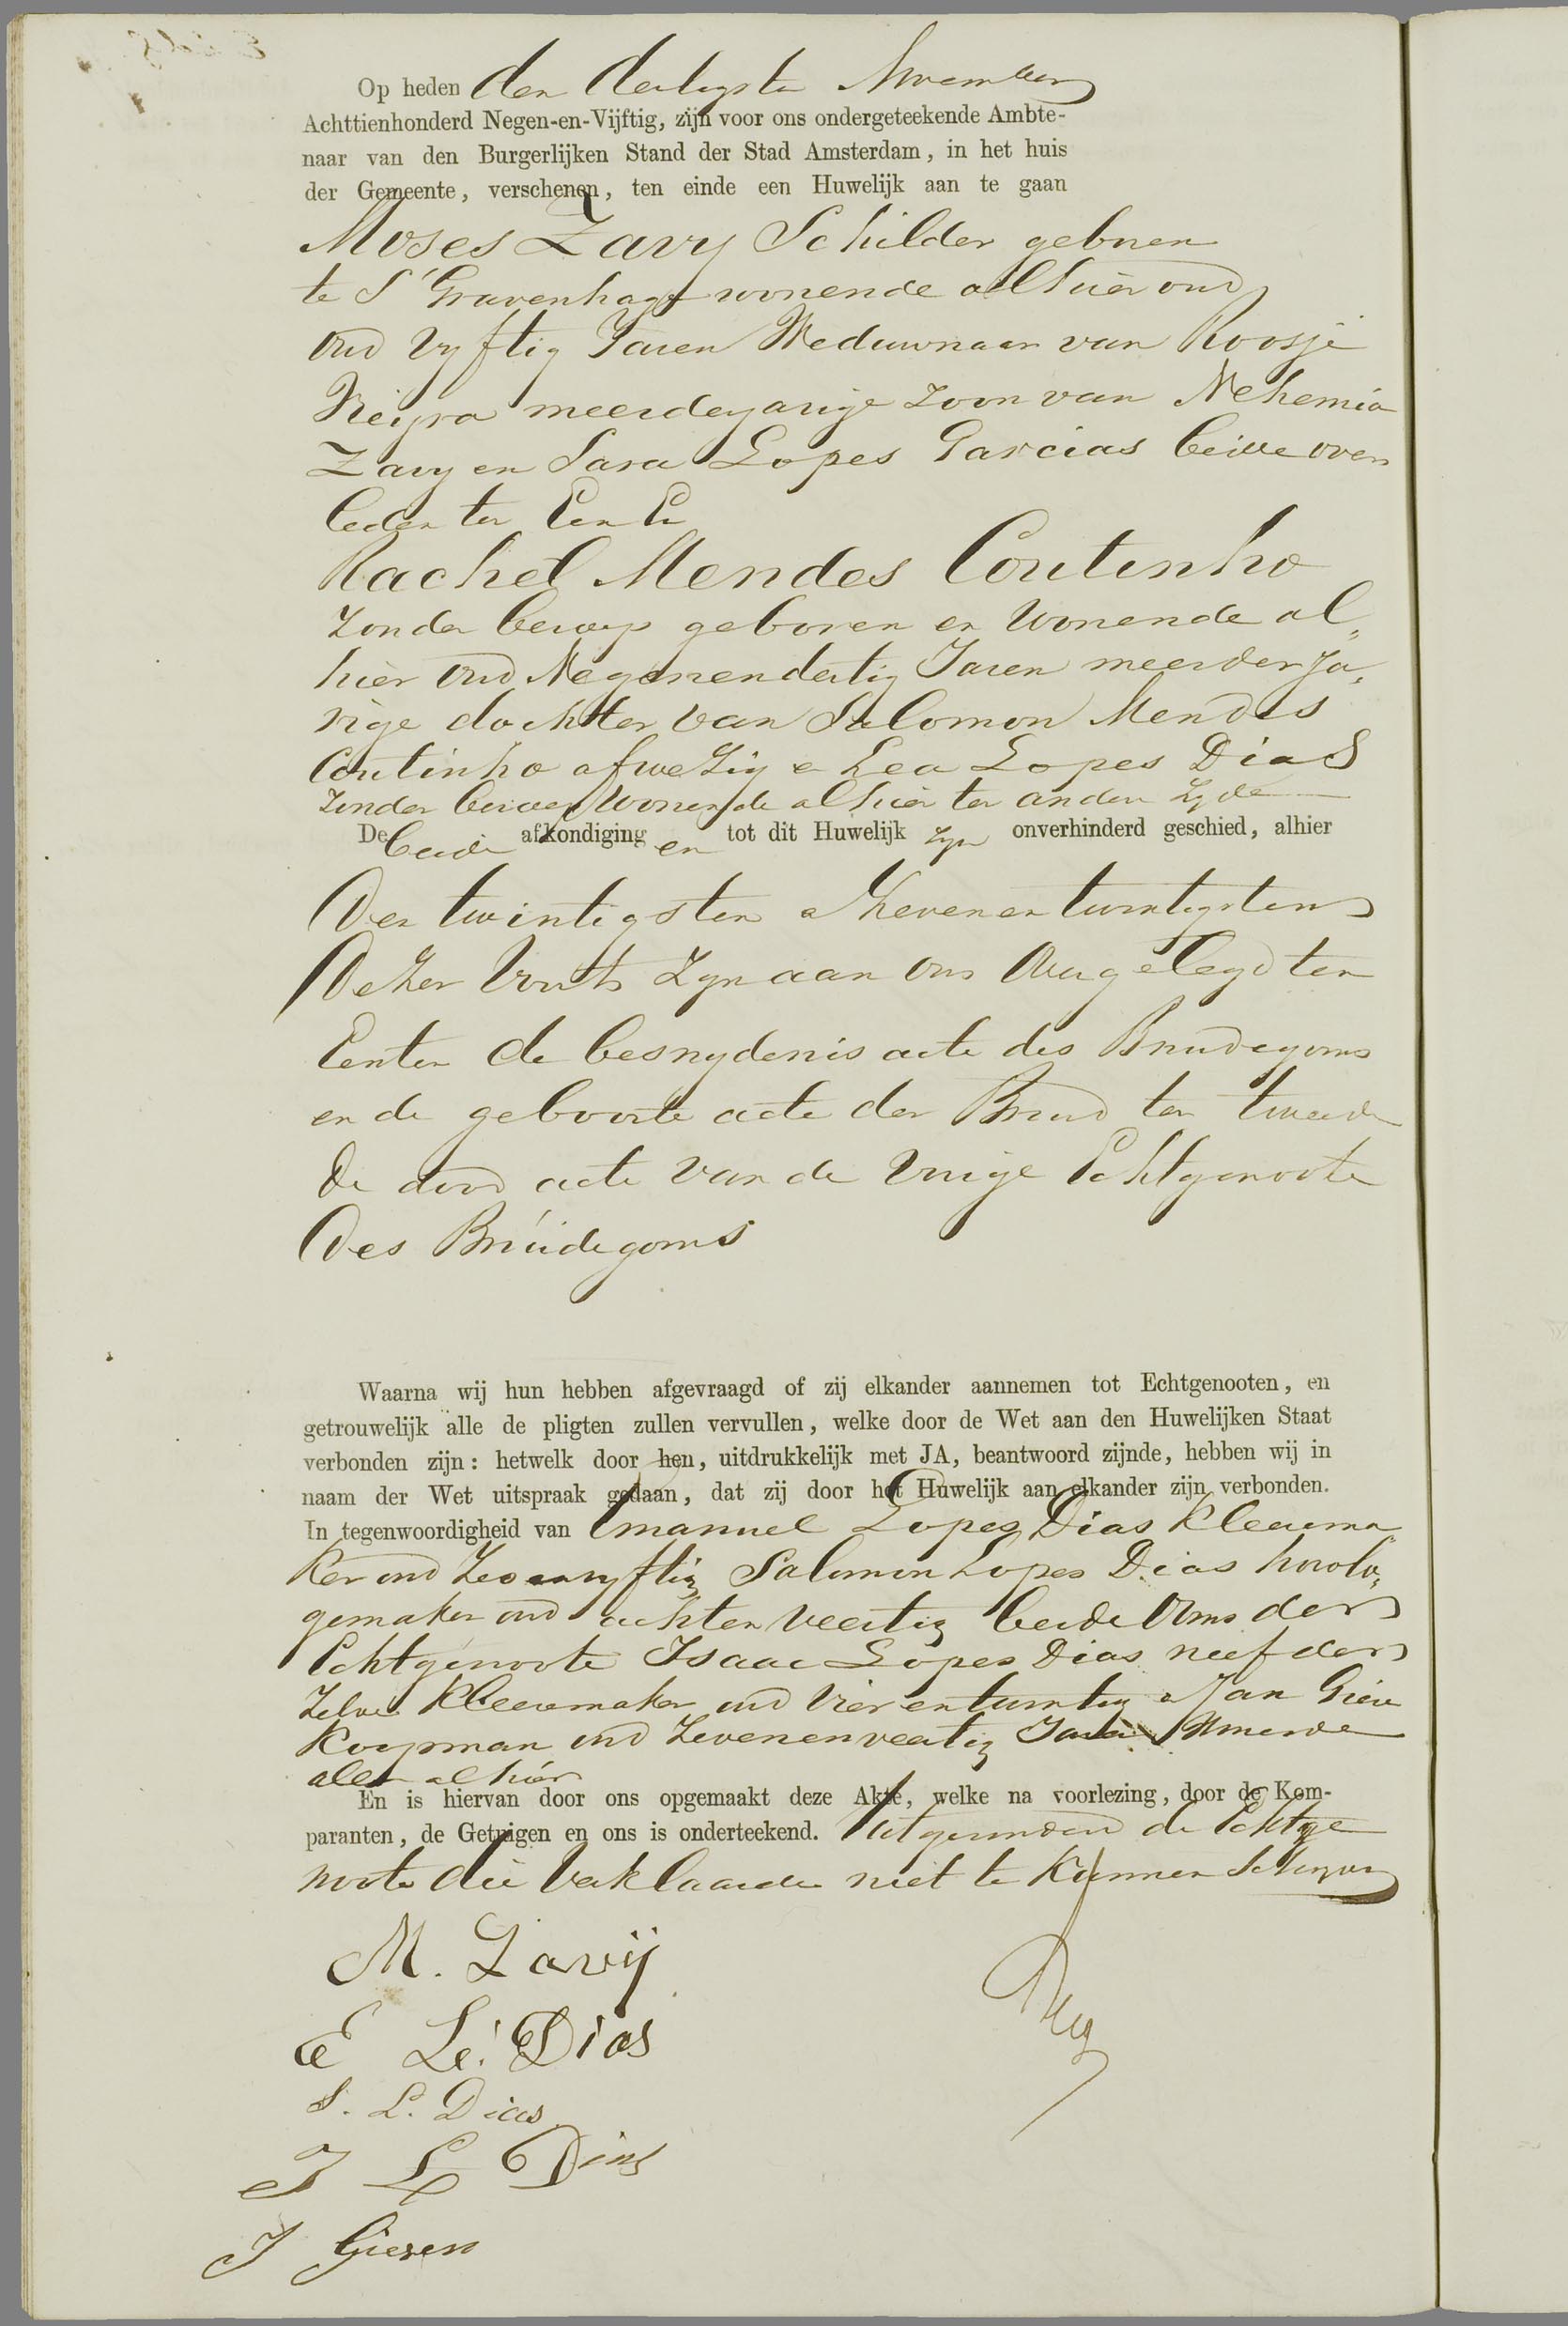 Op heden den dertigsten November
Achttienhonderd Negen-en-Vijftig, zijn voor ons ondergeteekende Ambte-
naar van den Burgerlijken Stand der Stad Amsterdam, in het huis
der Gemeente, verschenen, ten einde een Huwelijk aan te gaan
Moses Zavy Schilder geboren
te S'Gravenhage wonende alhier oud
oud vyftig Jaren Weduwnaar van Roosje
meerderjarige zoon van Nehemia
Zavy en Sara Lopes Garcias beide over
leden ter Eenre En
Rachel Mendes Coutinho
zonder beroep geboren en wonende al„
hier oud Negenendertig Jaren meerderja„
rige dochter van Salomon Mendes
Coutinho afwezig en Lea Lopes Dias
zonder beroep wonende alhier ter andere zyde
De beide afkondiging en tot dit Huwelijk zyn onverhinderd geschied, alhier
Den twintigsten en Zevenentwintigsten
Dezer Voorts Zyn aan Ons Overgelegd ten
Eersten de besnydenis acte des Bruidegoms
en de geboorte acte der Bruid ten tweede
De dood acte van de Vorige Echtgenoote
Des Bruidegoms
Waarna wij hun hebben afgevraagd of zij elkander aannemen tot Echtgenooten, en
getrouwelijk alle de pligten zullen vervullen, welke door de Wet aan den Huwelijken Staat
verbonden zijn: hetwelk door hen, uitdrukkelijk met JA, beantwoord zijnde, hebben wij in
naam der Wet uitspraak gedaan, dat zij door het Huwelijk aan elkander zijn verbonden.
In tegenwoordigheid van Emanuel Lopes Dias Kleerma
ker oud Zesenvyftig Salomon Lopes Dias horolo„
gemaker oud achtenveertig beide Ooms der
Echtgenoote Isaac Lopes Dias neef der
Zelve Kleermaker oud Vierentwintig en Jan
Koopman oud Zevenenveertig Jaren Wonende
allen alhier
En is hiervan door ons opgemaakt deze Akte, welke na voorlezing, door de Kom-
paranten, de Getuigen en ons is onderteekend. Uitgezonderd de Echtge
noote die Verklaarde niet te Kunnen Schryven
M. Zavij
E Le. Dias
S. L. Dias
J L Dias
J Giesen